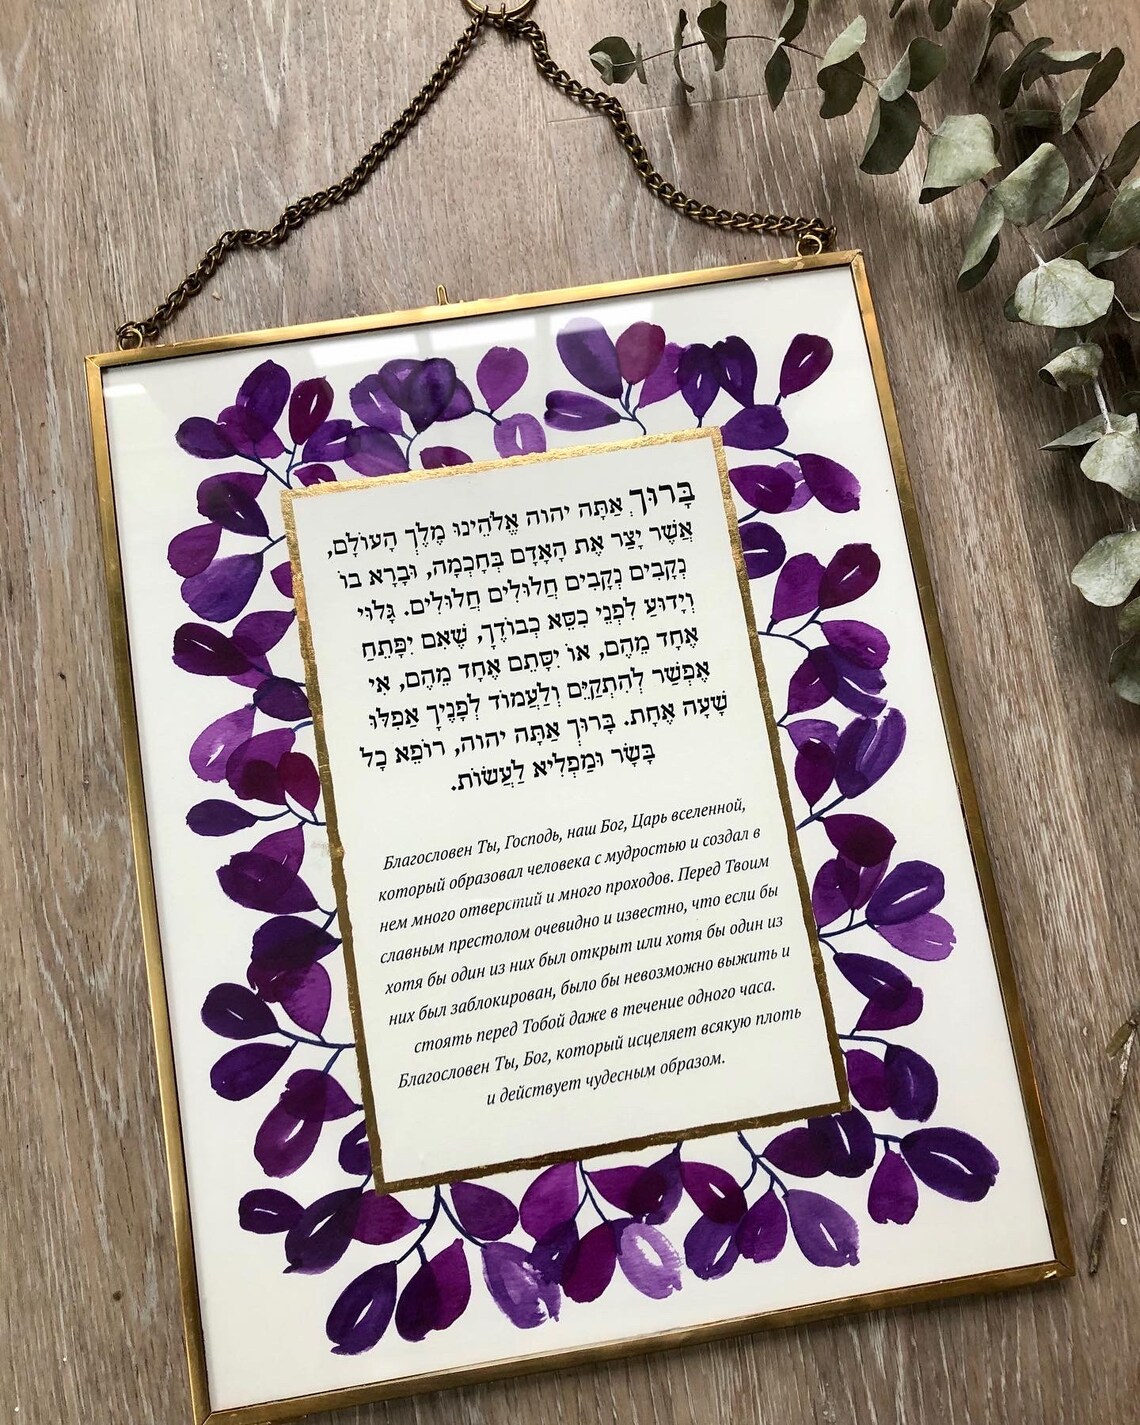 בָּרוּךְ אַתָּה יהוה אֱלֹהֵינוּ מֶלֶךְ הָעוֹלָם,
אֲשֶׁר יָצַר אֶת הָאָדָם בְּחָכְמָה, וּבָרָא בוֹ
נְקָבִים נְקָבִים חֲלוּלִים חֲלוּלִים. גָּלוּי
וְיָדוּעַ לִפְנֵי כִסֵּא כְבוֹדֶךָ, שֶׁאִם יִפָּתֵחַ
אֶחָד מֵהֶם, אוֹ יִסָּתֵם אֶחָד מֵהֶם, אִי
אֶפְשַׁר לְהִתְקַיֵּם וְלַעֲמוֹד לְפָנֶיךָ אַפִלּוּ
שָׁעָה אֶחָת. בָּרוּךְ אַתָּה יהוה, רוֹפֵא כָל
בָּשָׂר וּמַפְלִיא לַעֲשׂוֹת.
Благословен Ты, Господь, наш Бог, Царь вселенной,
который образовал человека с мудростью и создал в
нем много отверстий и много проходов. Перед Твоим
славным престолом очевидно и известно, что если бы
хотя бы один из них был открыт или хотя бы один из
них был заблокирован, было бы невозможно выжить и
стоять перед Тобой даже в течение одного часа.
Благословен Ты, Бог, который исцеляет всякую плоть
и действует чудесным образом.